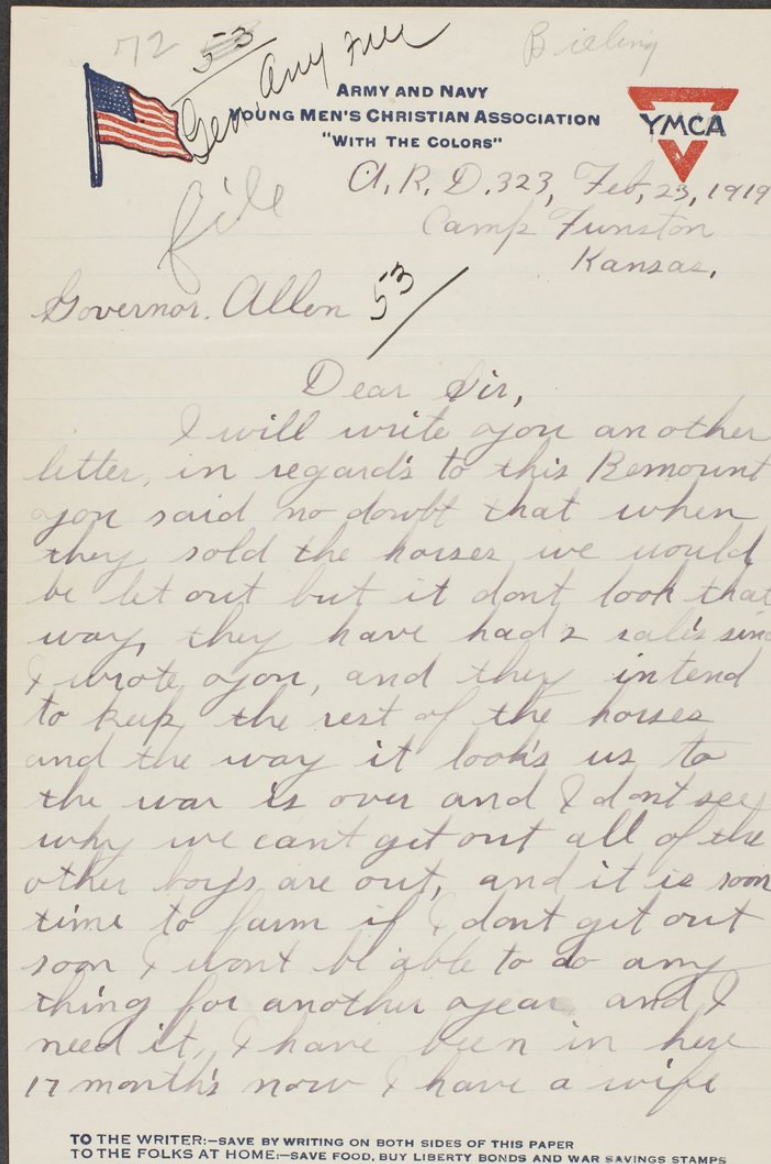 72 53 Bieling
Gen. Any
ARMY AND NAVY
YOUNG MEN'S CHRISTIAN ASSOCIATION
"WITH THE COLORS"
YMCA
file
A, R, D. 323, Feb, 23, 1919
Camp Funston
Kansas,
Governor. Allen 53
Dear Sir,
I will write you another
letter, in regards to this Remount
you said no doubt that when
they sold the horses we would
be let out but it dont look that
way, they have had 2 sales
I wrote you, and they intend
to keep the rest of the horses
and the way it look's us to
the war is over and I dont see
why we cant get out all of the
other boy's are out, and it is soon
time to farm if I dont get out
soon I wont be able to do any
thing for another year and I
need it, I have been in here
17 month's now I have a wife
TO THE WRITER:—SAVE BY WRITING ON BOTH SIDES OF THIS PAPER
TO THE FOLKS AT HOME:—SAVE FOOD, BUY LIBERTY BONDS AND WAR SAVINGS STAMPS